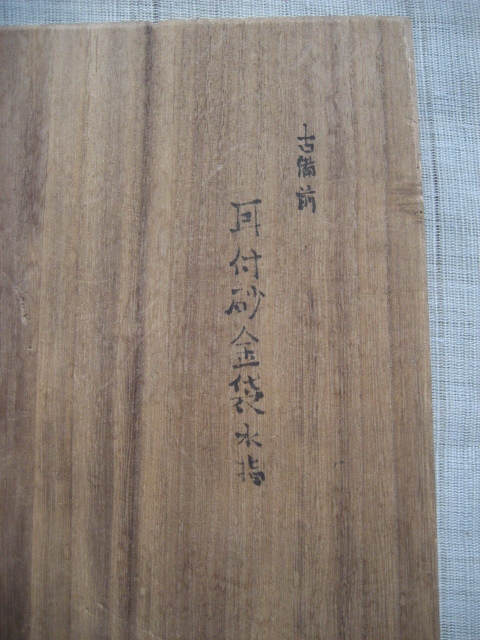 古備前
耳付砂金袋水指